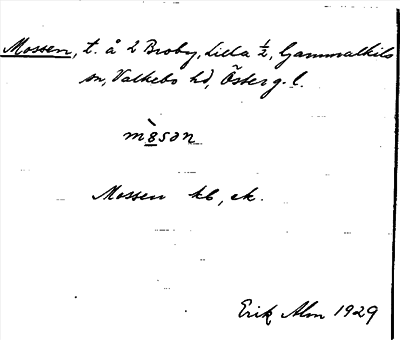 Mossen, t. å 2 Broby, Lilla ½, Gammalkils
sn, Valkebo hd, Österg. l.
mò̱sən
Mossen kb, ek.
Erik Alm 1929